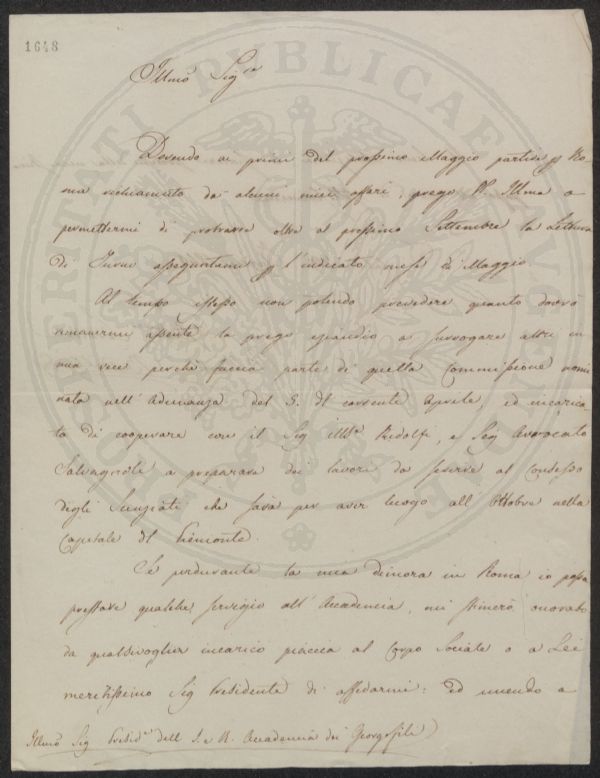 1648
Illmo Sigre
Dovendo ai primi del prossimo Maggio partire p Ro-
ma richiamato da alcuni miei affari, prego V. Illma a
permettermi di protrarre oltre al prossimo Settembre la Lettura
di Turno assegnatami p l'indicato mese di Maggio.
Al tempo istesso non potendo prevedere quanto dovrò
rimanermi assente la prego eziandio a surrogare altri in
mia vece perchè faccia parte di quella Commissione nomi
nata nell'Adunanza del 5. del corrente Aprile, ed incarica
ta di cooperare con il Sig Ridolfi, e Sig Avvocato
Salvagnoli a preparare dei lavori da servire al Consesso
degli Scienziati che sarà per aver luogo all'Ottobre nella
Capitale del Piemonte.
Se perdurante la mia dimora in Roma io possa
prestare qualche servigio all'Accademia, mi stimerò onorato
da qualsivoglia incarico piaccia al Corpo Sociale o a Lei
meritissimo Sig Presidente di affidarmi: ed unendo a
Illmo Sig Presid.e dell'I. e R. Accademia dei Georgofili
PUBLICAE